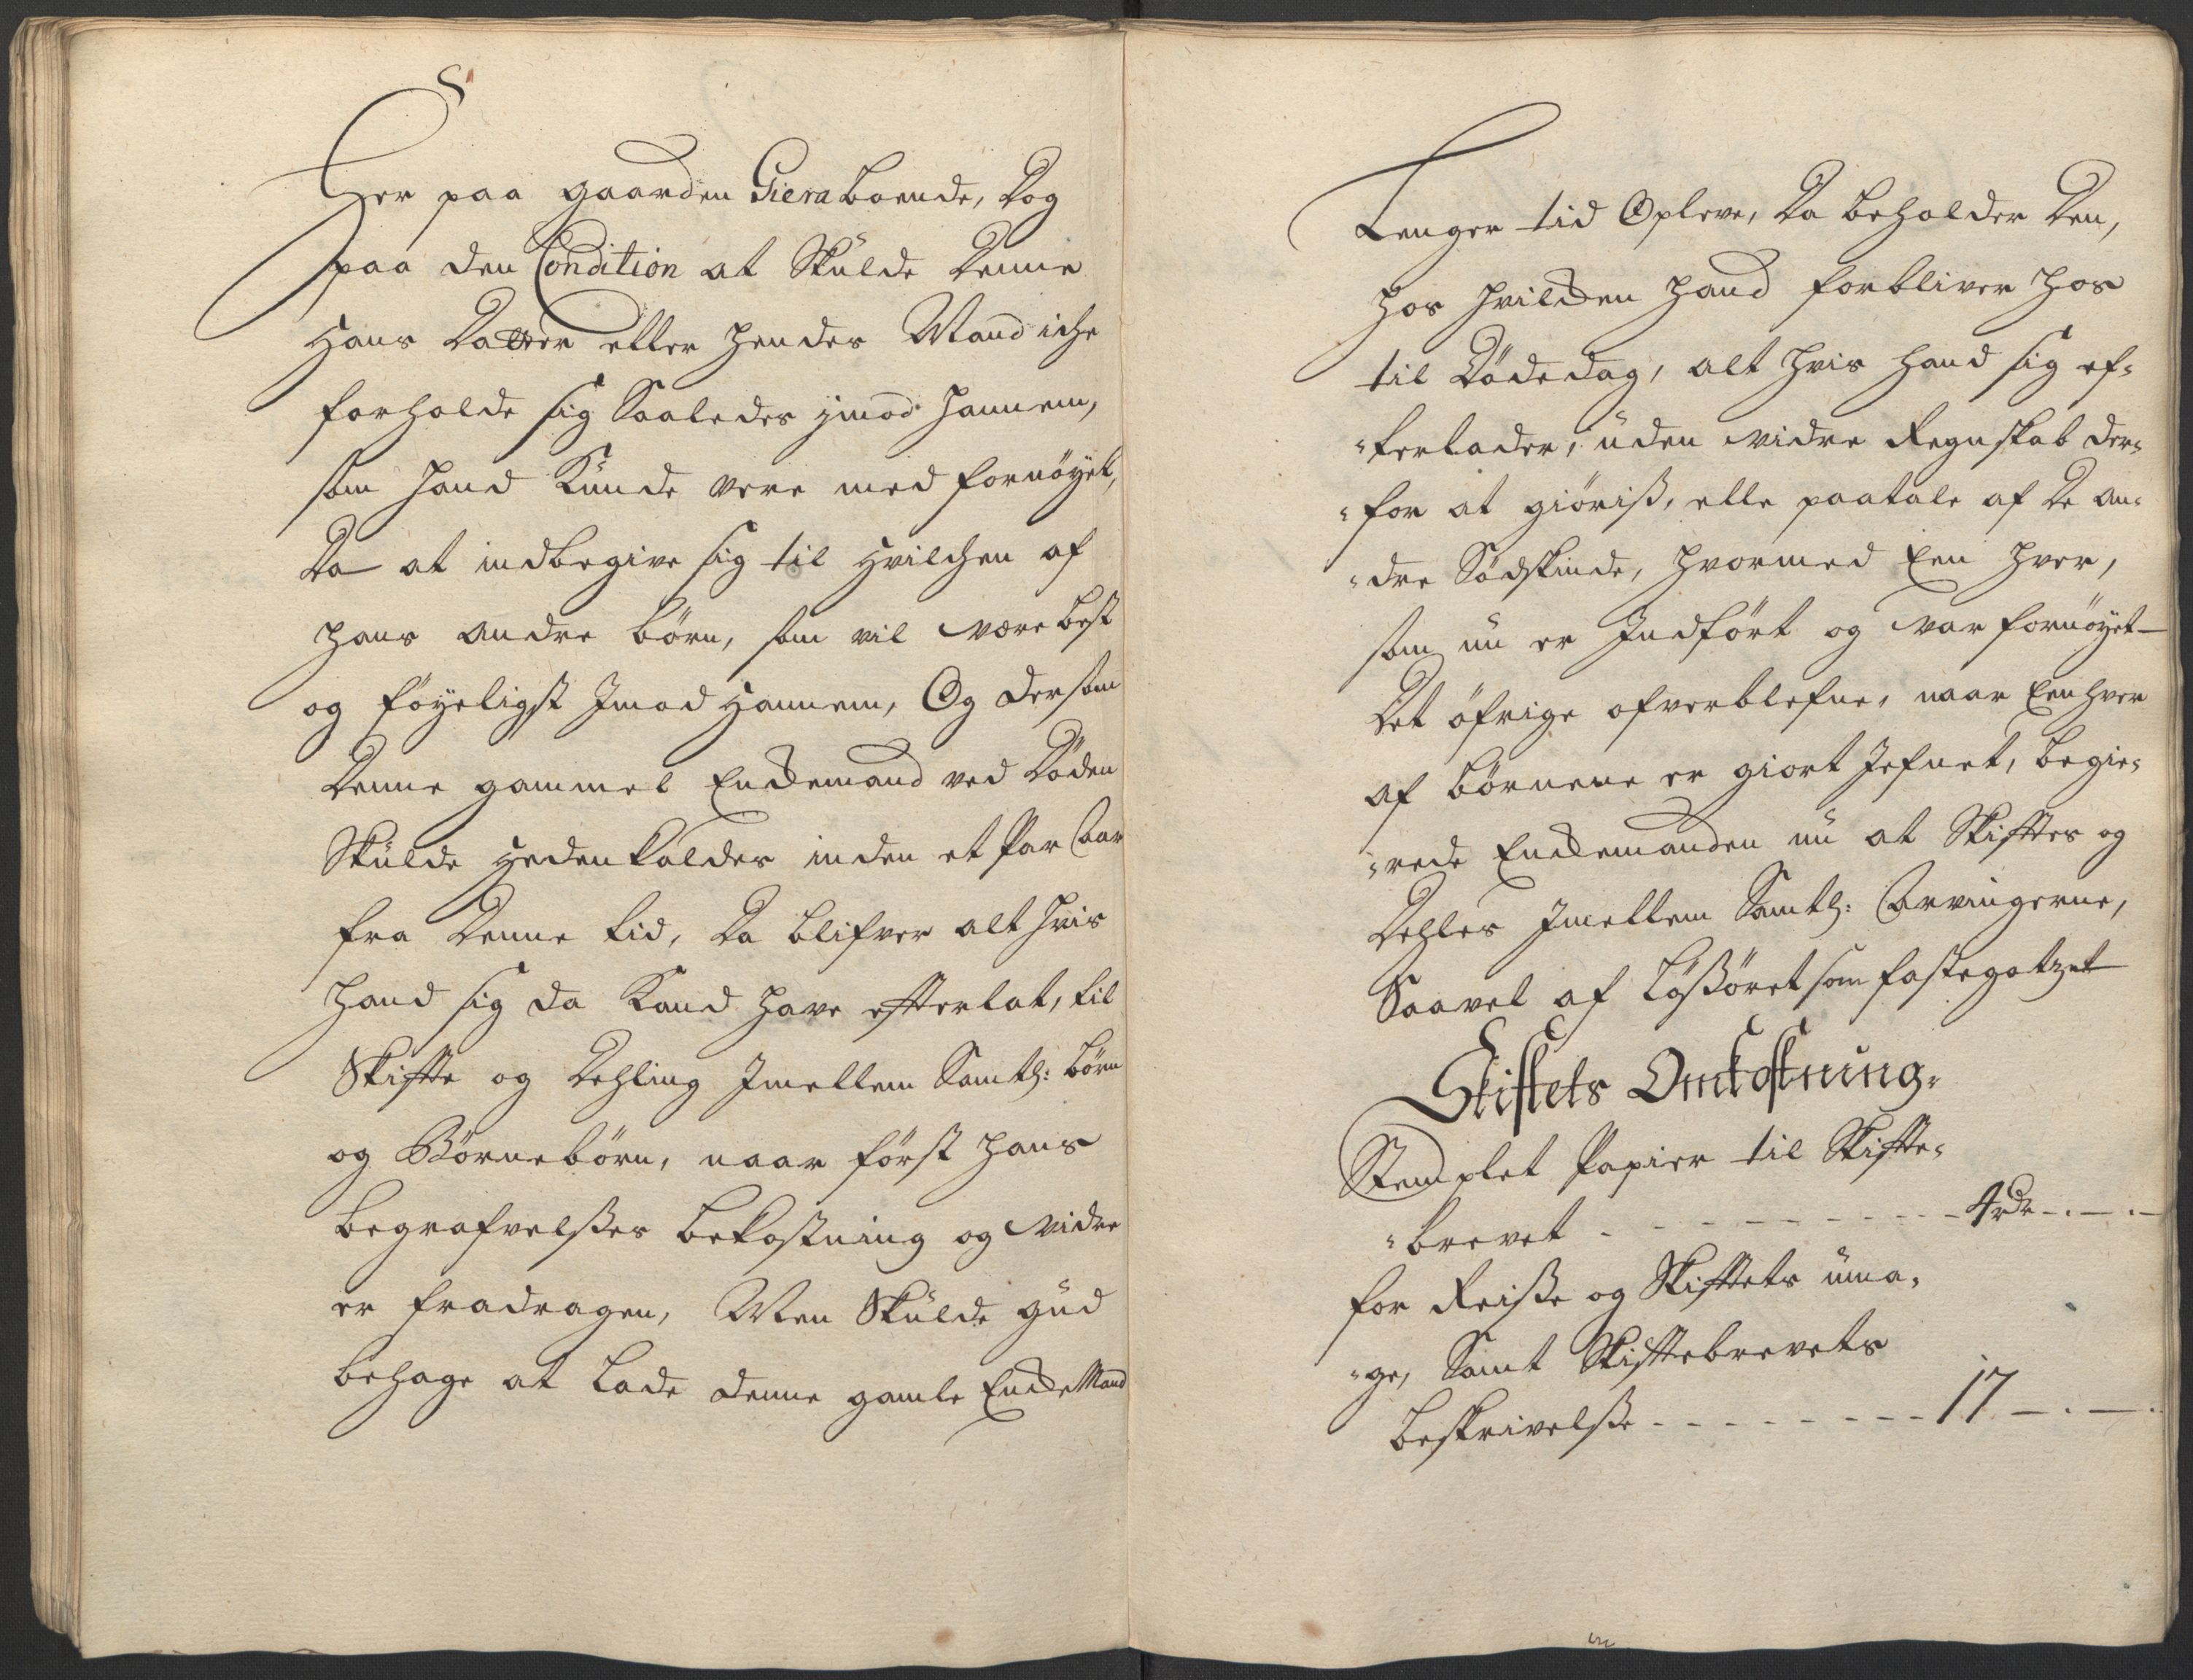 Her paa gaarden Giera boende, Dog
paa den Condition at Skulde Denne
Hans Datter eller hendes Mand iche
forholde sig Saaledes imod hannem,
som hand Kunde vere med fornöyet,
Da at indbegive sig til hvilchen af
hans andre börn, som vil være best
og föyeligst Imod hannem, Og dersom
Denne gammel Enckemand ved Döden
Skulde hedenkaldes inden et Par Aar
fra Denne tid, Da blifver alt hvis
hand sig da Kand have effterlat, til
Skiffte og Dehling Imellem Samtl: börn
og Börnebörn, naar först hans
begrafvelses bekostning og vidre
er fradragen, Men Skulde gud
behage at Lade denne gamle EnckeMand
Lenger tid Opleve, Da beholder Den,
hos hvilcken hand forbliver hos
til Dödedag, alt hvis hand sig ef-
-terlader, uden vidre Regnskab der-
-for at giöriß, elle paatale af De an-
-dre Södskinde, hvormed Een hver,
som nu er Indfört og var fornöyet
Det öfrige ofverblefne, naar Een hver
af börnene er giort Jefnet, begie-
-rede Enckemanden nu at Skifftes og
Dehles Imellem Samtl: Arvingerne,
Saavel af Lößöret som fastegotzet
Skiftets Omkostning.
Stemplet Papier til Skiffte-
-brevet - - - - - - - - - 4 rdr - . - . -
for Reiße og Skifftets uma-
-ge, Samt Skifftebrevets
beskrivelße - - - - - - - - 17 - . - .